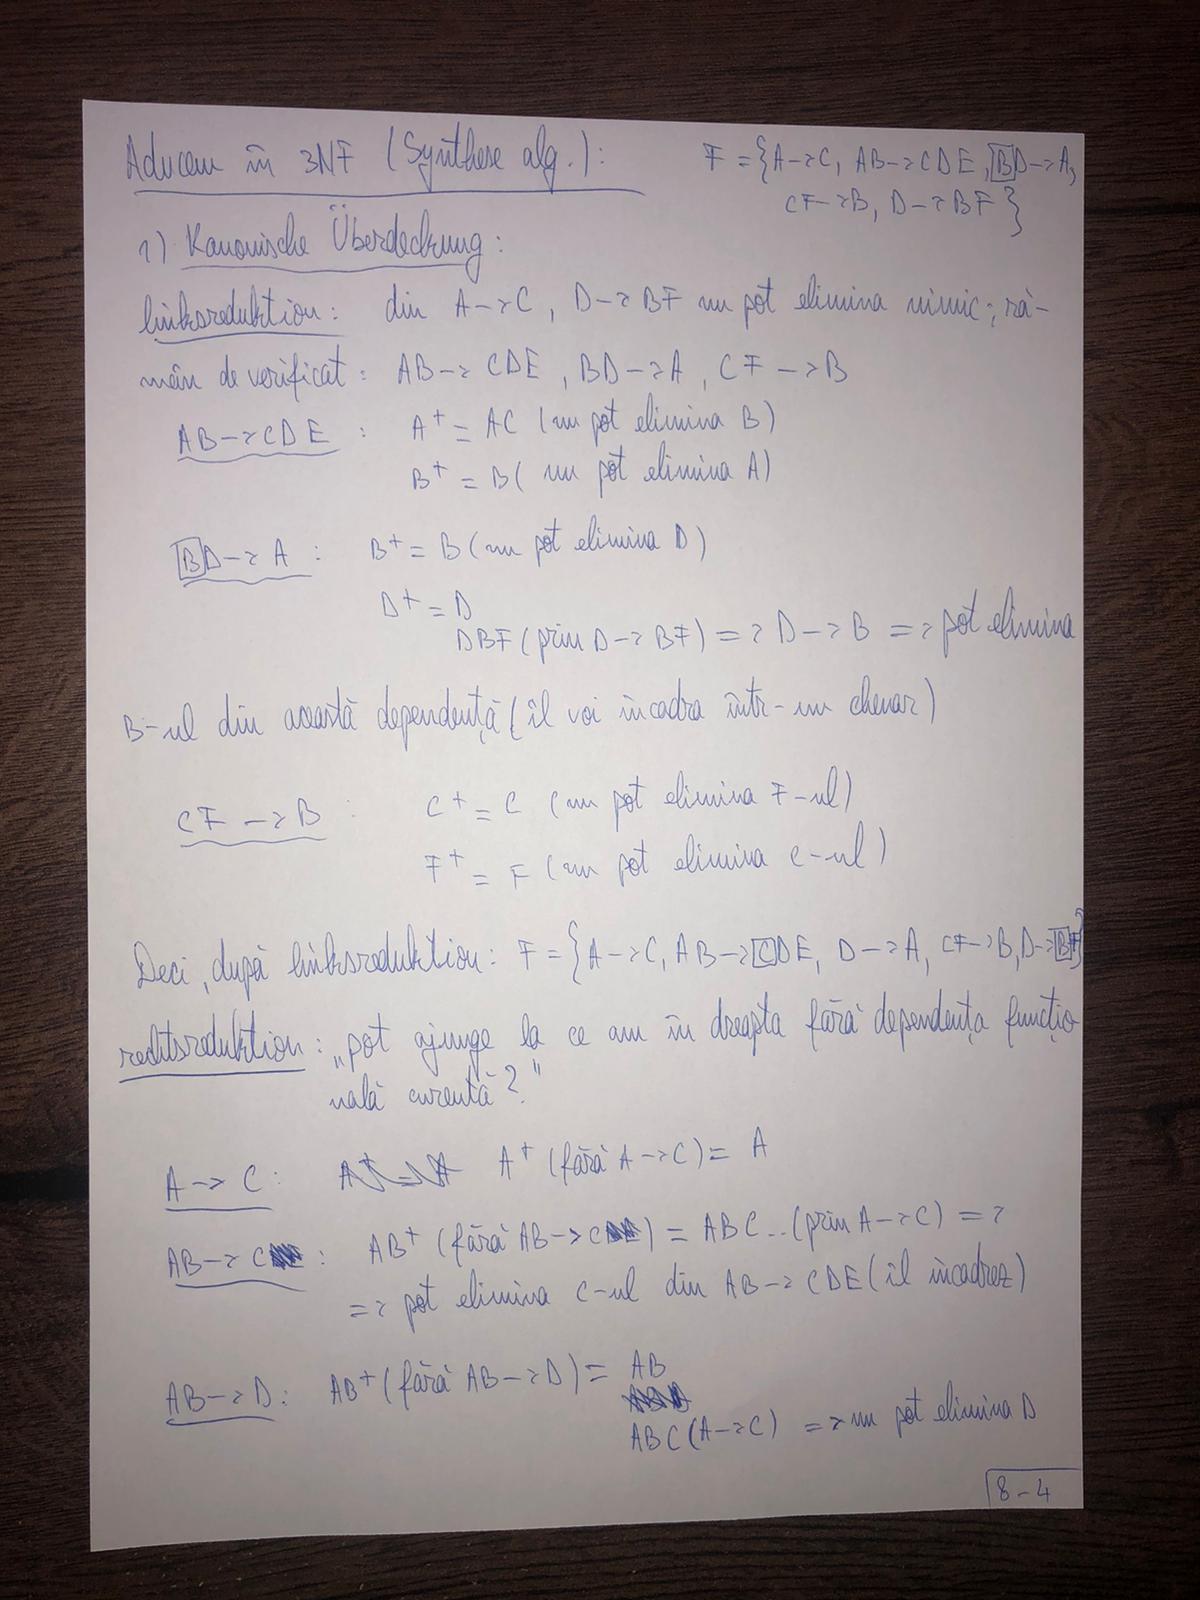 Aducem în 3NF (Synthese alg.):
F = {A->C, AB->CDE, BD->A,
CF->B, D->BF}
1) Kanonische Überdeckung:
linksreduktion: din A->C, D->BF nu pot elimina nimic; ră-
mân de verificat: AB->CDE, BD->A, CF->B
AB->CDE: A+ = AC (nu pot elimina B)
B+ = B (nu pot elimina A)
BD->A: B+ = B (nu pot elimina D)
D+ = D
DBF (prin D->BF) => D->B => pot elimina
B-ul din această dependență (îl voi încadra într-un chenar)
CF->B: C+ = C (nu pot elimina F-ul)
F+ = F (nu pot elimina C-ul)
Deci, după linksreduktion: F = {A->C, AB->CDE, D->A, CF->B, D->BF}
rechtsreduktion: „pot ajunge la ce am în dreapta fără dependența funcțio
nală curentă?"
A->C: A+ (fără A->C) = A
AB->C: AB+ (fără AB->C) = ABC.. (prin A->C) =>
=> pot elimina C-ul din AB->CDE (îl încadrez)
AB->D: AB+ (fără AB->D) = AB
ABC (A->C) => nu pot elimina D
8-4